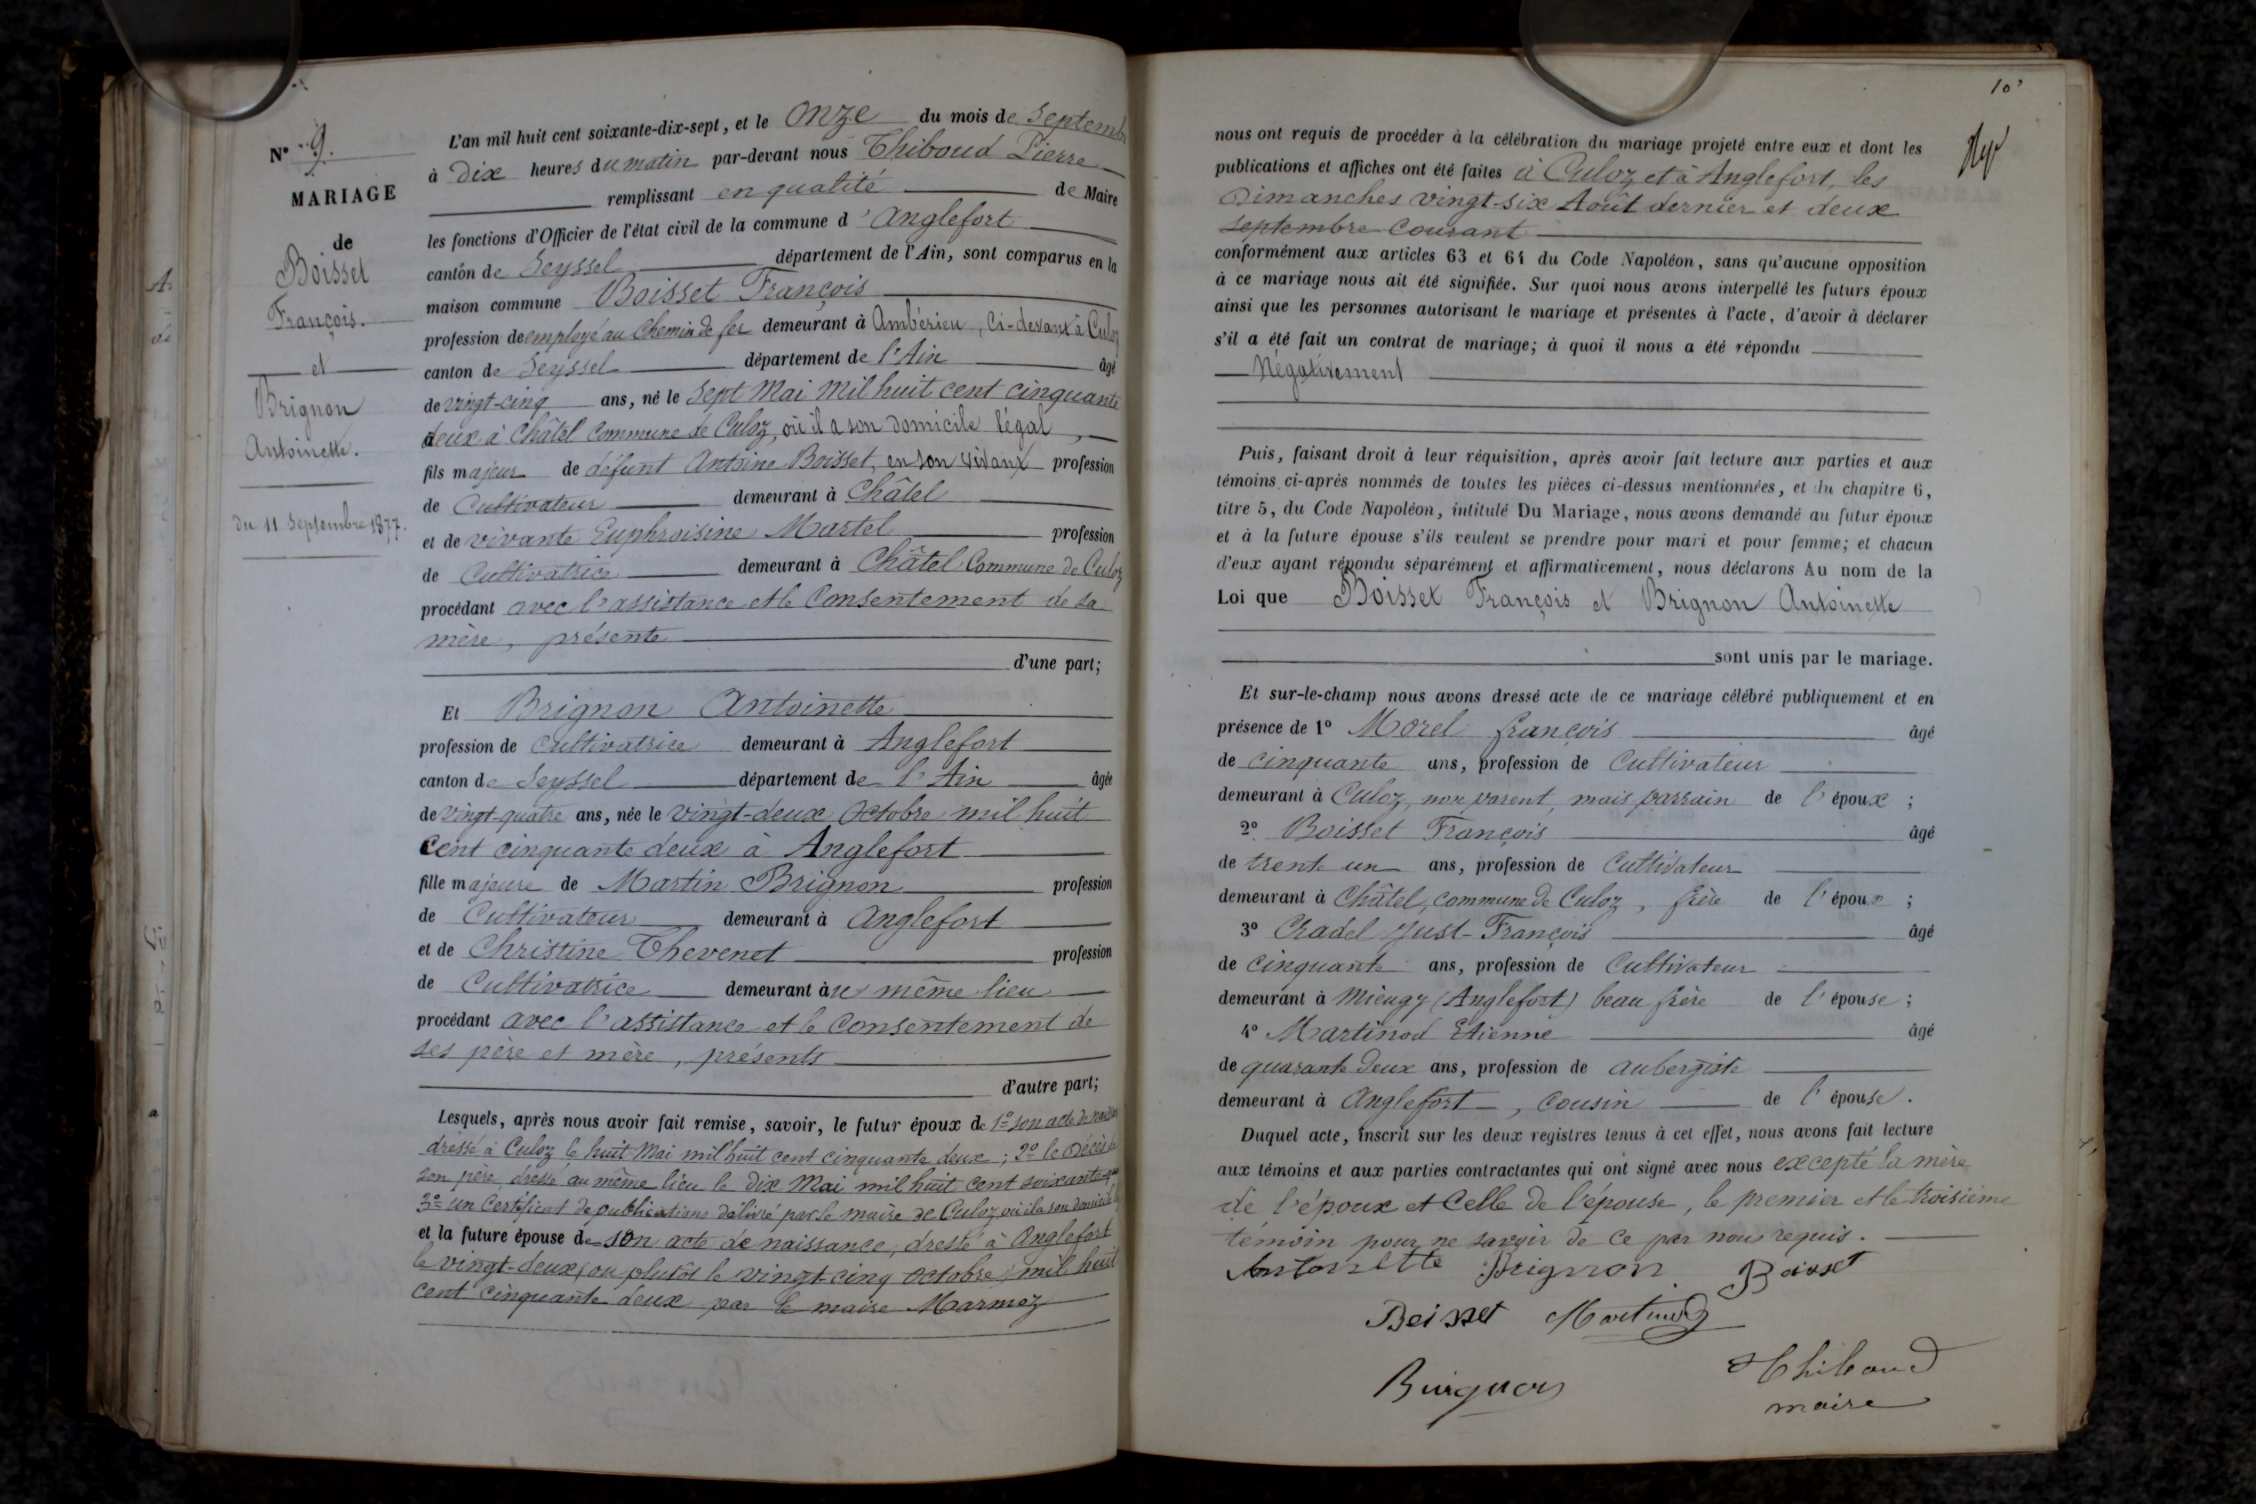 N° 9.
MARIAGE
de
Boisset
François.
et
Brignon
Antoinette.
du 11 Septembre 1877.
L'an mil huit cent soixante-dix-sept, et le onze du mois de Septembre
à Dix heures du matin par-devant nous Thiboud Pierre
remplissant en qualité de Maire
les fonctions d'Officier de l'état civil de la commune d'Anglefort
canton de Seyssel département de l'Ain, sont comparus en la
maison commune Boisset François
profession de employé au Chemin de fer demeurant à Ambérieu, Ci-devant à Culoz
canton de Seyssel département de l'Ain âgé
de vingt-cinq ans, né le sept Mai mil huit cent cinquante
deux à Châtel Commune de Culoz, où il a son domicile légal,
fils majeur de défunt Antoine Boisset, en son vivant profession
de Cultivateur demeurant à Châtel
et de vivante Euphroisine Martel profession
de Cultivatrice demeurant à Châtel Commune de Culoz
procédant avec l'assistance et le Consentement de sa
mère, présente
d'une part;
Et Brignon Antoinette
profession de Cultivatrice demeurant à Anglefort
canton de Seyssel département de l'Ain âgée
de vingt-quatre ans, née le vingt-deux Octobre mil huit
Cent cinquante deux à Anglefort
fille majeure de Martin Brignon profession
de Cultivateur demeurant à Anglefort
et de Christine Thevenet profession
de Cultivatrice demeurant au même lieu
procédant avec l'assistance et le Consentement de
ses père et mère, présents
d'autre part;
Lesquels, après nous avoir fait remise, savoir, le futur époux de 1° son acte de
dressé à Culoz le huit Mai mil huit cent cinquante deux; 2° le Décès de
son père, dressé au même lieu le dix Mai mil huit cent soixante
3° un Certificat de publications délivré par le maire de Culoz, où il a son domicile
et la future épouse de son acte de naissance, dressé à Anglefort
le vingt-deux, ou plutôt le vingt-cinq octobre mil huit
cent cinquante deux par le maire Marmoz
10
nous ont requis de procéder à la célébration du mariage projeté entre eux et dont les
publications et affiches ont été faites à Culoz et à Anglefort, les
Dimanches vingt-six Août dernier et deux
septembre Courant
conformément aux articles 63 et 64 du Code Napoléon, sans qu'aucune opposition
à ce mariage nous ait été signifiée. Sur quoi nous avons interpellé les futurs époux
ainsi que les personnes autorisant le mariage et présentes à l'acte, d'avoir à déclarer
s'il a été fait un contrat de mariage; à quoi il nous a été répondu
Négativement
Puis, faisant droit à leur réquisition, après avoir fait lecture aux parties et aux
témoins ci-après nommés de toutes les pièces ci-dessus mentionnées, et du chapitre 6,
titre 5, du Code Napoléon, intitulé Du Mariage, nous avons demandé au futur époux
et à la future épouse s'ils veulent se prendre pour mari et pour femme; et chacun
d'eux ayant répondu séparément et affirmativement, nous déclarons Au nom de la
Loi que Boisset François et Brignon Antoinette
sont unis par le mariage.
Et sur-le-champ nous avons dressé acte de ce mariage célébré publiquement et en
présence de 1° Morel françois âgé
de cinquante ans, profession de Cultivateur
demeurant à Culoz, non parent, mais parrain de l'époux;
2° Boisset François âgé
de trente un ans, profession de Cultivateur
demeurant à Châtel, commune de Culoz, frère de l'époux;
3° Cradel Just-François âgé
de cinquante ans, profession de Cultivateur
demeurant à Mieugy (Anglefort) beau frère de l'épouse;
4° Martinod Etienne âgé
de quarante deux ans, profession de aubergiste
demeurant à Anglefort, cousin de l'épouse.
Duquel acte, inscrit sur les deux registres tenus à cet effet, nous avons fait lecture
aux témoins et aux parties contractantes qui ont signé avec nous excepté la mère
de l'époux et Celle de l'épouse, le premier et le troisième
témoin pour ne savoir de ce par nous requis.
Antoinette Brignon Boisset
Boisset Martinod
Brignon Thiboud
maire